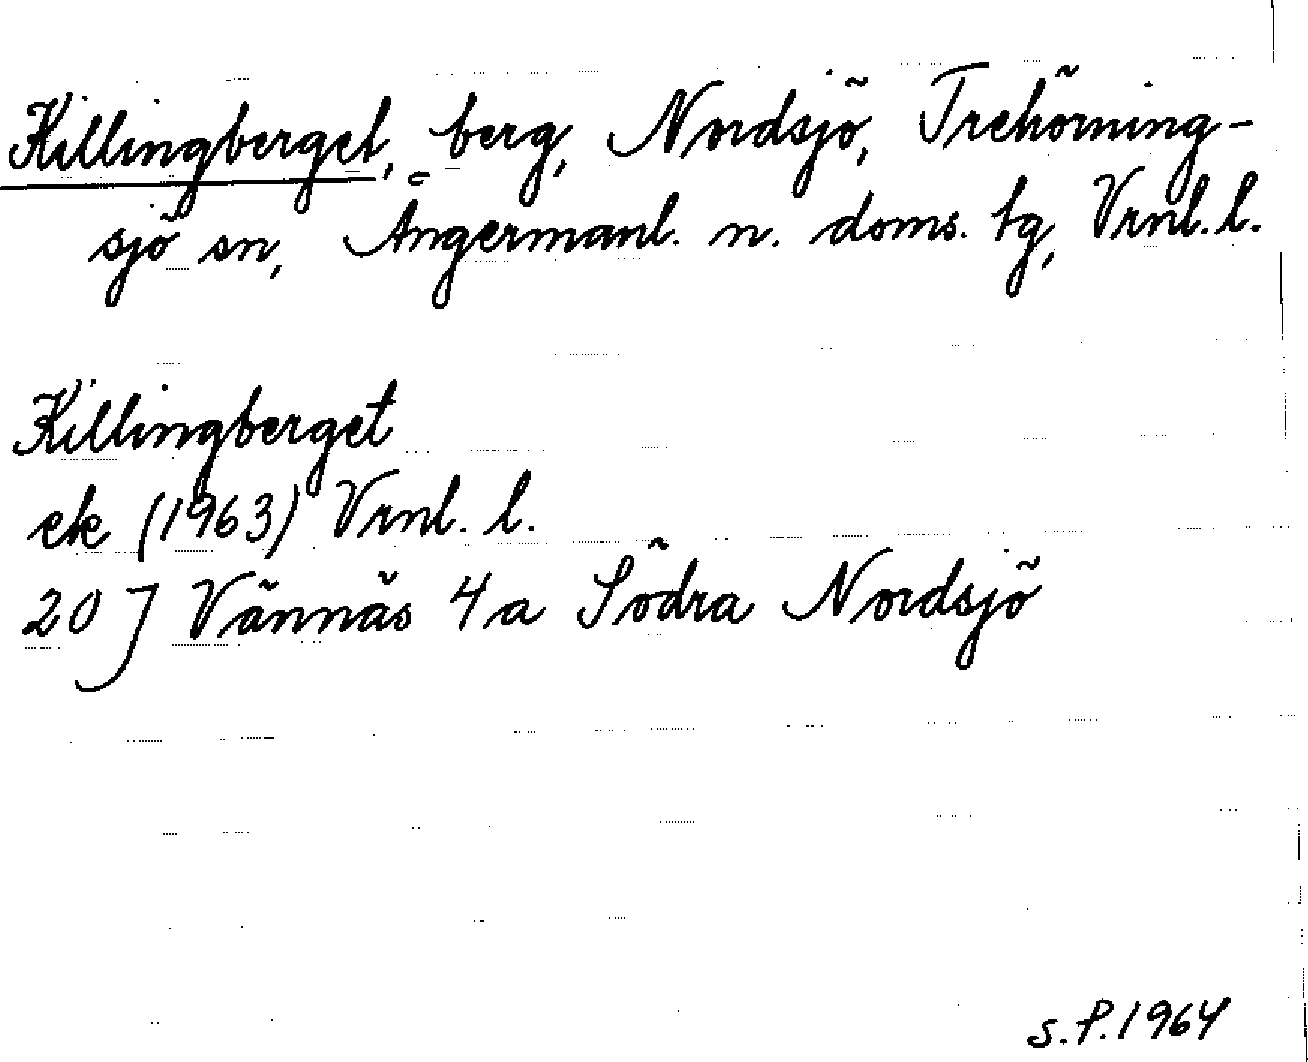 Killingberget, berg, Nordsjö, Trehörning-
sjö sn, Ångermanl. n. doms. tg, Vrnl. l.
Killingberget
ek (1963) Vrnl. l.
20 J Vännäs 4a Södra Nordsjö
S.P. 1964